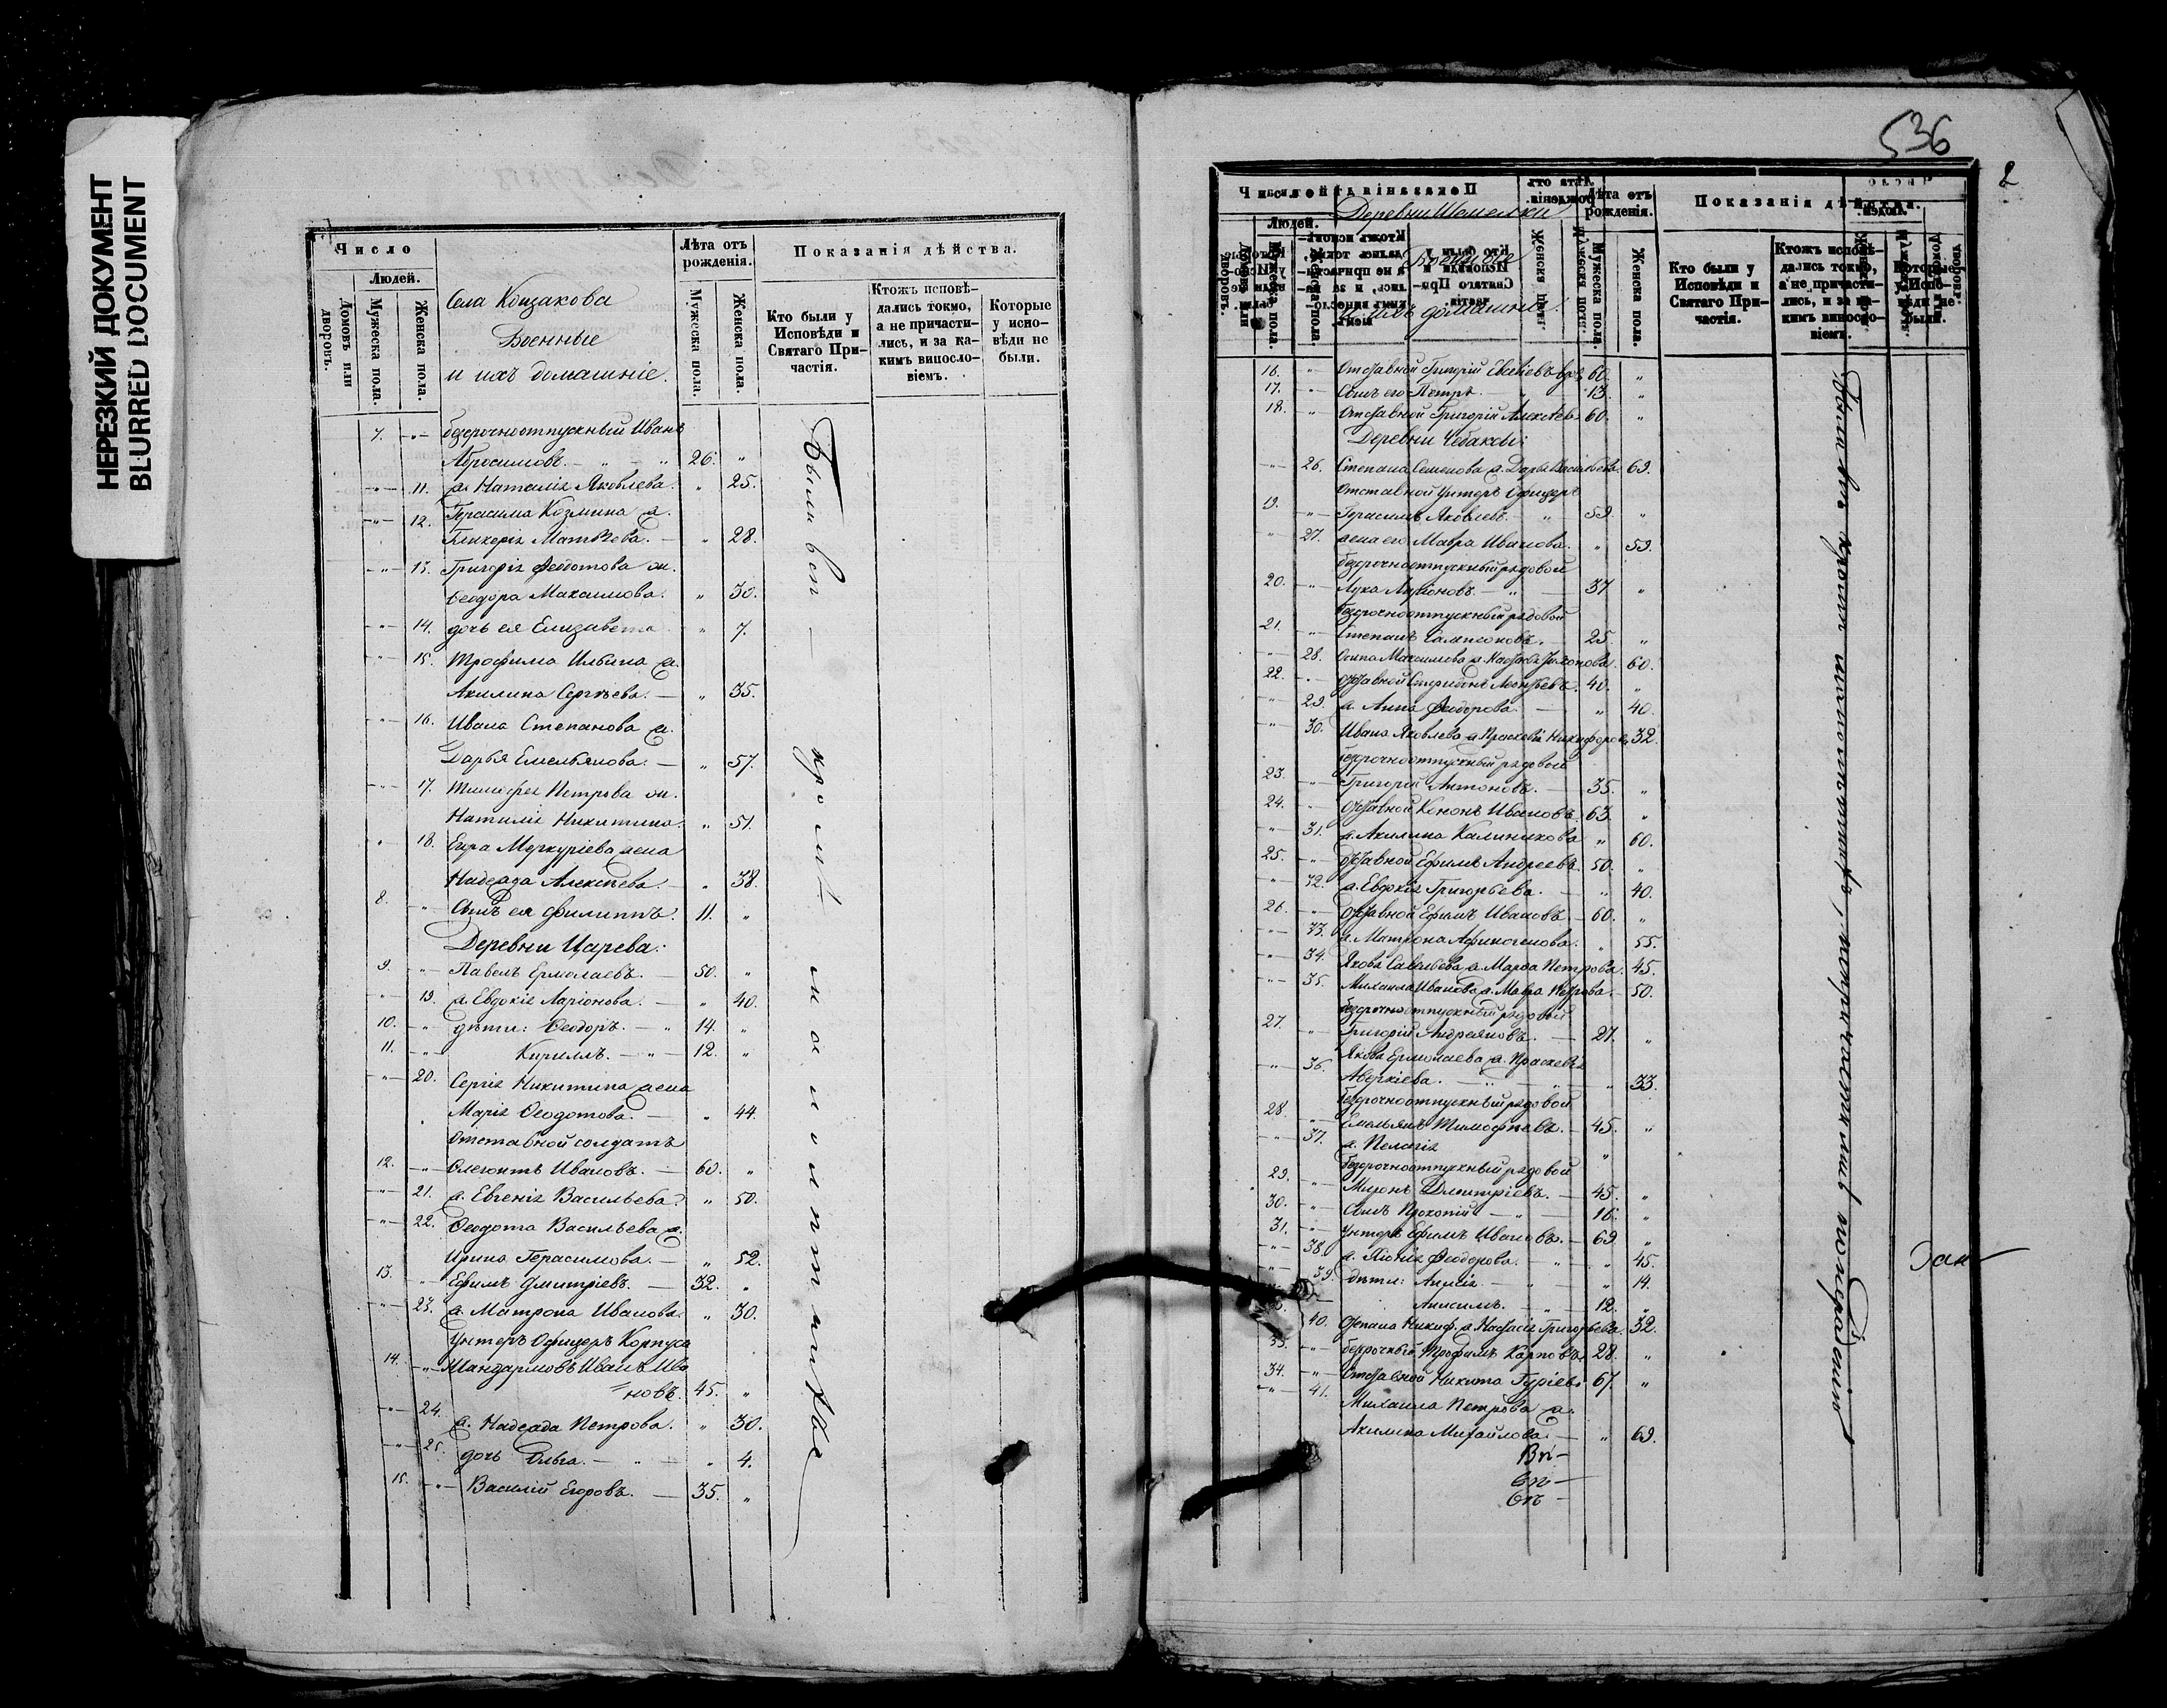 НЕРЕЗКИЙ ДОКУМЕНТ
BLURRED DOCUMENT
Число
Людей.
Домовъ или дворовъ.
Мужеска пола.
Женска пола.
Села Кощакова
Военные
и ихъ домашніе.
Лѣта отъ рожденія.
Мужеска пола.
Женска пола.
Показанія дѣйства.
Кто были у Исповѣди и Святаго Причастія.
Ктожъ исповѣдались токмо, а не причастились, и за какимъ винословіемъ.
Которые у исповѣди не были.
7. безсрочноотпускный Иванъ
Абросимовъ. 26. "
11. ж. Наталія Яковлева. " 25.
12. Герасима Козмина ж.
Гликерія Матвѣева. " 28.
13. Григорія Ѳедотова ж.
Ѳеодора Максимова. " 30.
14. дочь ея Елизавета " 7.
15. Трофима Ильина ж.
Акилина Сергѣева. " 35.
16. Ивана Степанова ж.
Дарья Емельянова. " 57.
17. Тимофея Петрова ж.
Наталія Никитина. " 51.
18. Егора Меркуріева жена
Надежда Алексѣева. " 38.
8. Сынъ ея Филиппъ. 11. "
Деревни Царева:
9. Павелъ Ермолаевъ. 50. "
19. ж. Евдокія Ларіонова. " 40.
10. дѣти: Ѳеодоръ. 14. "
11. Кириллъ. 12. "
20. Сергія Никитина жена
Марія Ѳеодотова. " 44.
Отставной солдатъ
12. Ивановъ. 60. "
21. ж. Евгенія Васильева. " 50.
22. Ѳеодота Васильева ж.
Ирина Герасимова. " 52.
13. Ефимъ Дмитріевъ. 32. "
23. ж. Матрона Иванова. " 30.
Унтеръ Офицеръ Корпуса
14. Жандармовъ Иванъ Ива
=новъ. 45. "
24. ж. Надежда Петрова. " 30.
25. дочь Ольга. " 4.
15. Василій Егоровъ. 35. "
Были въ
кромѣ
536
2
Число
Людей.
Деревни Шемелки
Военные
и ихъ домашніе.
Лѣта отъ рожденія.
Мужеска пола.
Женска пола.
Показанія дѣйства.
Кто были у Исповѣди и Святаго Причастія.
Ктожъ исповѣдались токмо, а не причастились, и за какимъ винословіемъ.
Которые у Исповѣди не были.
16. Отставной Григорій 60. "
17. Сынъ его Петръ 13. "
18. Отставной Григорій Алексѣев. 60. "
Деревни Чебаксы:
26. Степана Семенова ж. Дарья Васильева. 69.
Отставной Унтеръ Офицеръ
19. Герасимъ Яковлевъ. 59. "
27. жена его Мавра Иванова. " 59.
безсрочноотпускный рядовой
20. Лука 37 "
безсрочноотпускный рядовой
21. Степанъ 25. "
28. Осипа Максимова ж. 60.
22. Отставной Спиридонъ Леонтьевъ. 40. "
29. ж. Анна Ѳеодорова. " 40.
30. Ивана Яковлева ж. Прасковія Никифорова 32.
безсрочноотпускный рядовой
23. Григорій Антоновъ. 35. "
24. Отставной Кононъ Ивановъ. 63. "
31. ж. Акилина Калиникова " 60.
25. Отставной Ефимъ Андреевъ. 50. "
32. ж. Евдокія Григорьева. " 40.
26. Отставной Ефимъ Ивановъ 60. "
33. ж. Матрона Афиногенова. " 55.
34. Якова Савельева ж. Марѳа Петрова. 45.
35. Михаила Иванова ж. Мавра Петрова. 50.
безсрочноотпускный рядовой
27. Григорій Андреяновъ. 27. "
36. Якова Ермолаева ж. Праскевія
Аверкіева. " 33.
безсрочноотпускный рядовой
28. Емельянъ Тимофеевъ. 45. "
37. ж. Пелагія "
безсрочноотпускный рядовой
29. Миронъ Дмитріевъ. 45. "
30. Сынъ Прокопій 16. "
31. Унтеръ Ефимъ Ивановъ. 69 "
38. ж. Ѳеодорова. " 45.
39. дѣти: Анисія. " 14.
Анисимъ. 12. "
40. Степана Никиф. ж. Настасія Григорьева. 32.
33. безсрочный Трофимъ Карповъ. 28. "
34. Отставной Никита Гурьевъ 67. "
41. Михаила Петрова ж.
Акилина Михайлова. " 69.